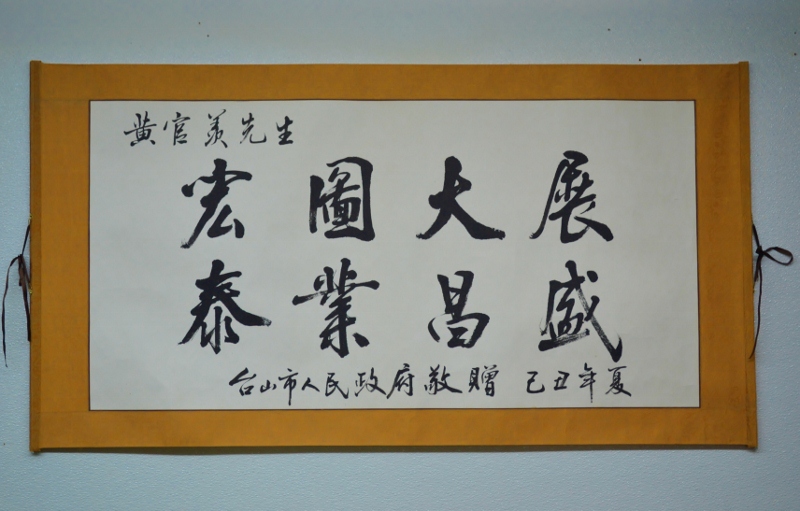 黄官羡先生
宏圖大展
泰業昌盛
台山市人民政府敬贈 己丑年夏